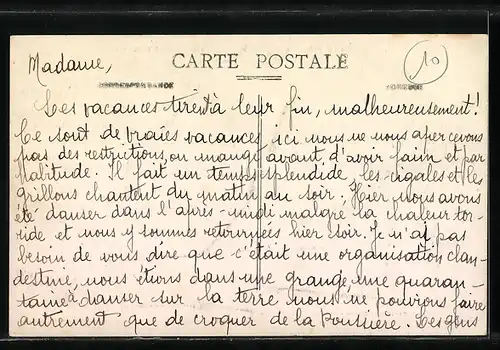 Madame,
CARTE POSTALE
10
Les vacances tirent à leur fin, malheureusement!
Ce sont de vraies vacances, ici nous ne nous apercevons
pas des restrictions, on mange avant d'avoir faim et par
habitude. Il fait un temps splendide, les cigales et les
grillons chantent du matin au soir. Hier nous avons
été danser dans l'après-midi malgré la chaleur tor-
ride et nous y sommes retournées hier soir. Je n'ai pas
besoin de vous dire que c'était une organisation clan-
destine, nous étions dans une grange, une quaran-
taine à danser sur la terre nous ne pouvions faire
autrement que de croquer de la Poussière. Les gens